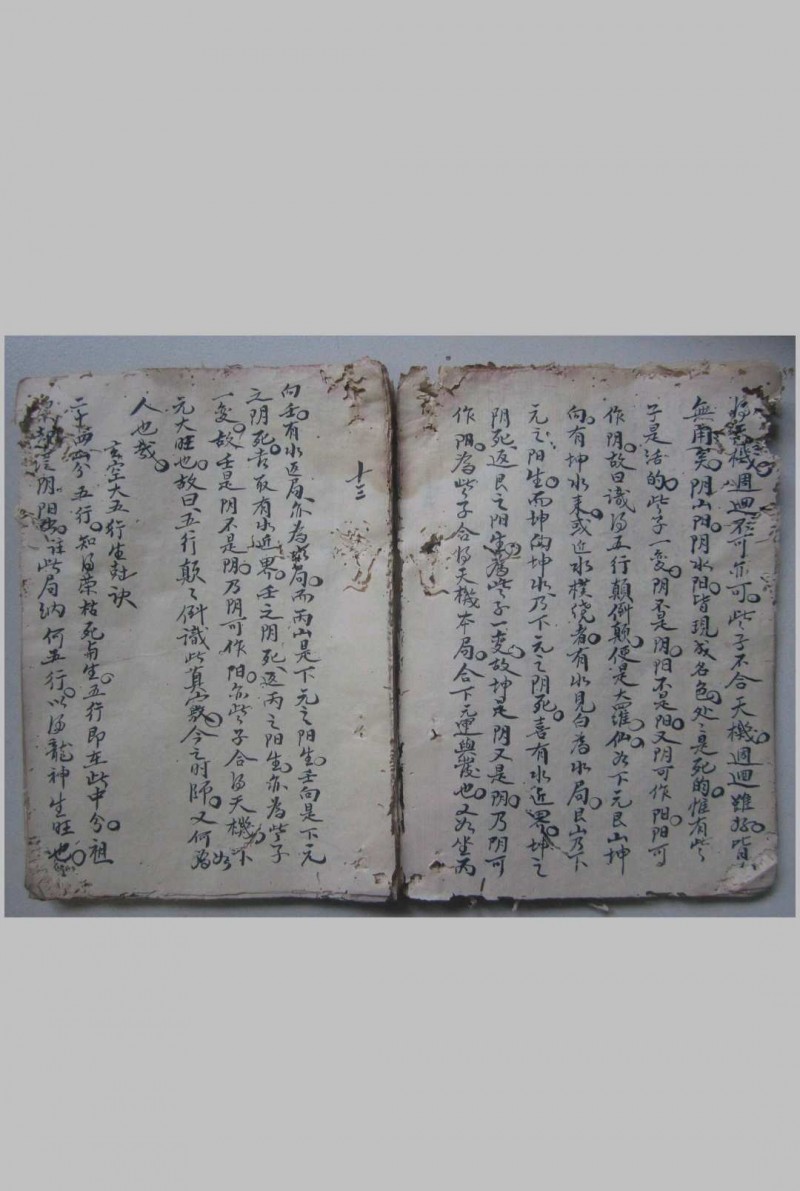 天機週迴不可亦可些子不合天機週迴雖好皆
無用矣阴山阳阴水阳皆現成名色处〻是死的惟有些
子是活的些子一变阴不是阴阳不是阳又阴可作阳阳可
作阴故曰識得五行顛倒顛便是大羅仙如下元艮山坤
向有坤水來或近水横绕者有水見白為水局艮山乃下
元之阳生而坤向坤水乃下元之阴死喜有水近界坤之
阴死返艮之阳生為些子一变故坤是阴又是阴乃阴可
作阳為些子合得天機本局合下元運興發也又如坐丙
十三
向壬有水近局亦為局而丙山是下元之阳生壬向是下元
之阴死喜取有水近界壬之阴死返丙之阳生亦為些子
一变故壬是阴不是阴乃阴可作阳亦些子合得天機如下
元大旺也故曰五行顛〻倒識此真今之时師又何為
人也哉
玄空大五行生尅诀
二十四山分五行知得荣枯死与生五行即在此中分祖
阴阳註此局纳何五行以得龍神生旺也